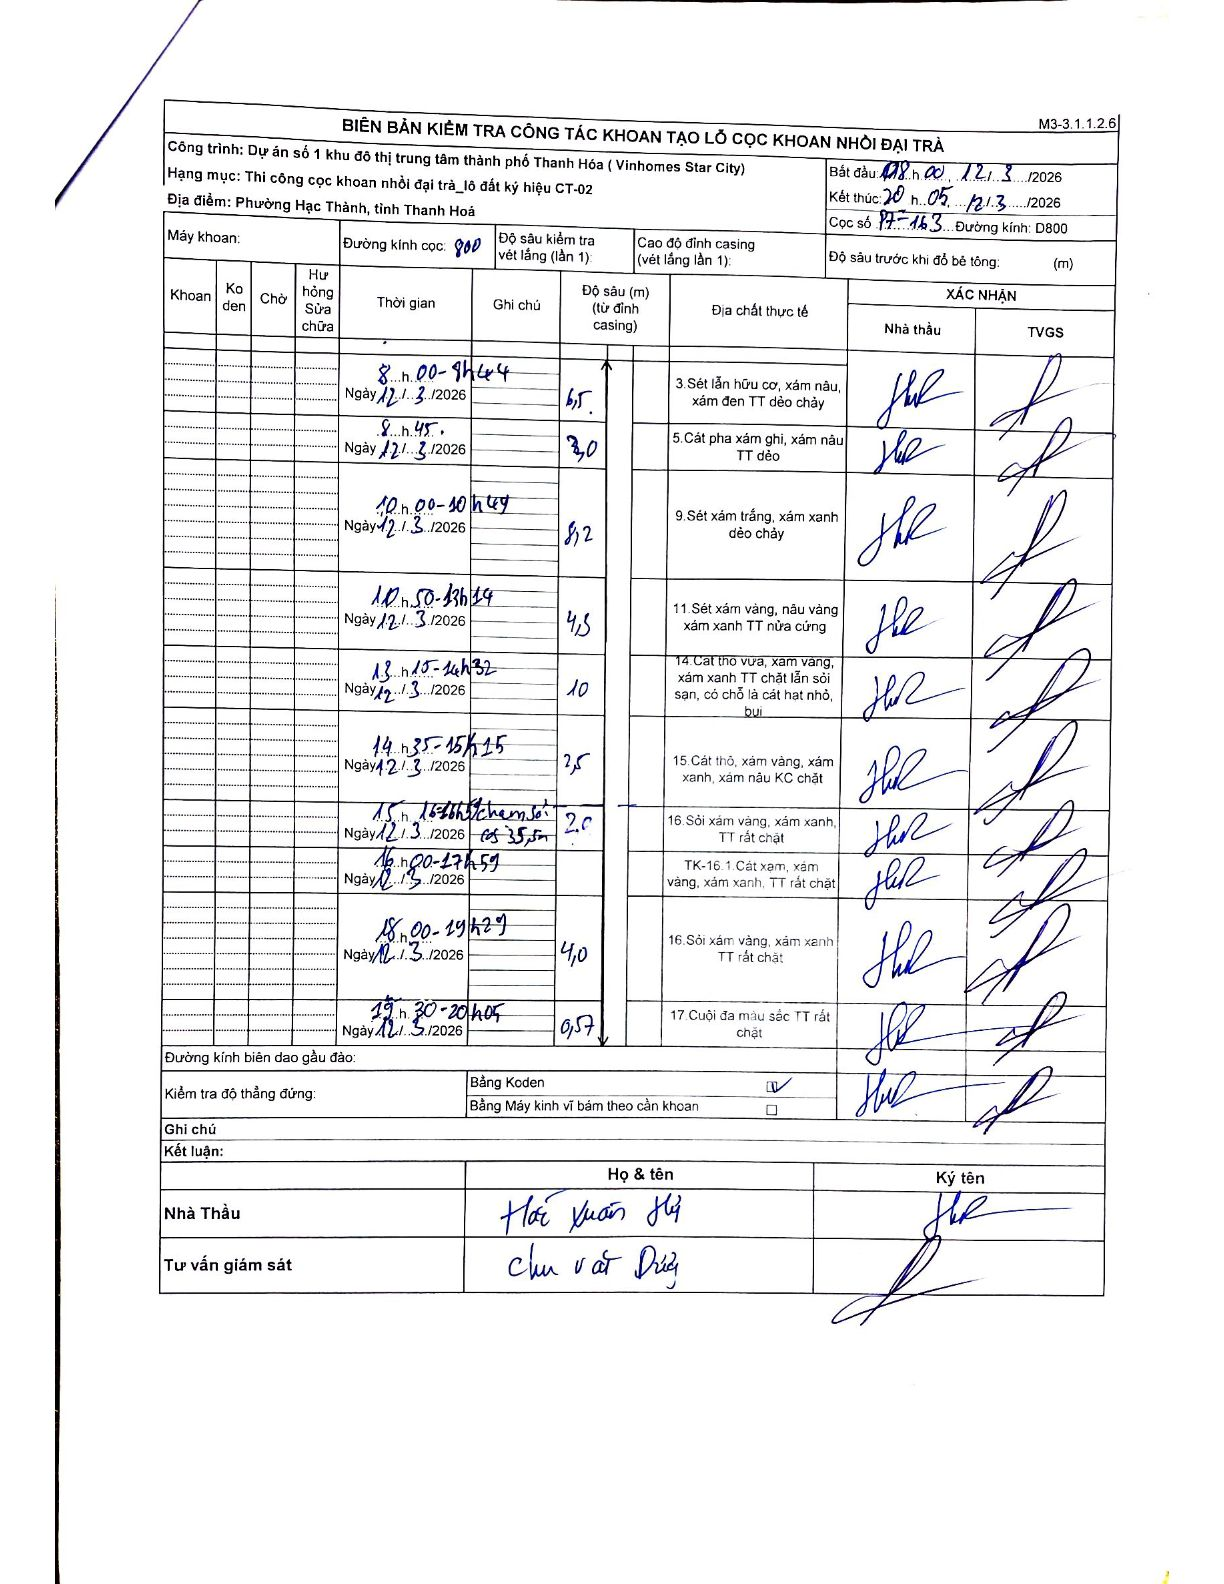 M3-3.1.1.2.6
BIÊN BẢN KIỂM TRA CÔNG TÁC KHOAN TẠO LỖ CỌC KHOAN NHỒI ĐẠI TRÀ
Công trình: Dự án số 1 khu đô thị trung tâm thành phố Thanh Hóa ( Vinhomes Star City)
Hạng mục: Thi công cọc khoan nhồi đại trà_lô đất ký hiệu CT-02
Địa điểm: Phường Hạc Thành, tỉnh Thanh Hoá
Bắt đầu: 08 h 00, 12/3/2026
Kết thúc: 20 h 05, 12/3/2026
Cọc số P7-163 Đường kính: D800
Máy khoan:
Đường kính cọc: 800
Độ sâu kiểm tra vét lắng (lần 1):
Cao độ đỉnh casing (vét lắng lần 1):
Độ sâu trước khi đổ bê tông: (m)
Khoan Ko den Chờ Hư hỏng Sửa chữa Thời gian Ghi chú Độ sâu (m) (từ đỉnh casing) Địa chất thực tế XÁC NHẬN
Nhà thầu TVGS
8 h 00-8h44
Ngày 12/3/2026 6,5 3.Sét lẫn hữu cơ, xám nâu, xám đen TT dẻo chảy
8 h 45
Ngày 12/3/2026 3,0 5.Cát pha xám ghi, xám nâu TT dẻo
10 h 00-10h49
Ngày 12/3/2026 8,2 9.Sét xám trắng, xám xanh dẻo chảy
10 h 50-13h14
Ngày 12/3/2026 4,3 11.Sét xám vàng, nâu vàng xám xanh TT nửa cứng
13 h 15-14h32
Ngày 12/3/2026 10 14.Cát thô vừa, xám vàng, xám xanh TT chặt lẫn sỏi sạn, có chỗ là cát hạt nhỏ, bụi
14 h 35-15h15
Ngày 12/3/2026 2,5 15.Cát thô, xám vàng, xám xanh, xám nâu KC chặt
15 h 16-16h59 chạm sỏi
Ngày 12/3/2026 cos 35,5m 2.0 16.Sỏi xám vàng, xám xanh, TT rất chặt
16 h 00-17h59
Ngày 12/3/2026 TK-16.1.Cát xạm, xám vàng, xám xanh, TT rất chặt
18 h 00-19h29
Ngày 12/3/2026 4,0 16.Sỏi xám vàng, xám xanh TT rất chặt
19 h 30-20h05
Ngày 12/3/2026 0,57 17.Cuội đa màu sắc TT rất chặt
Đường kính biên dao gầu đào:
Kiểm tra độ thẳng đứng:
Bằng Koden
Bằng Máy kinh vĩ bám theo cần khoan
Ghi chú
Kết luận:
Họ & tên Ký tên
Nhà Thầu Xuân
Tư vấn giám sát Chu